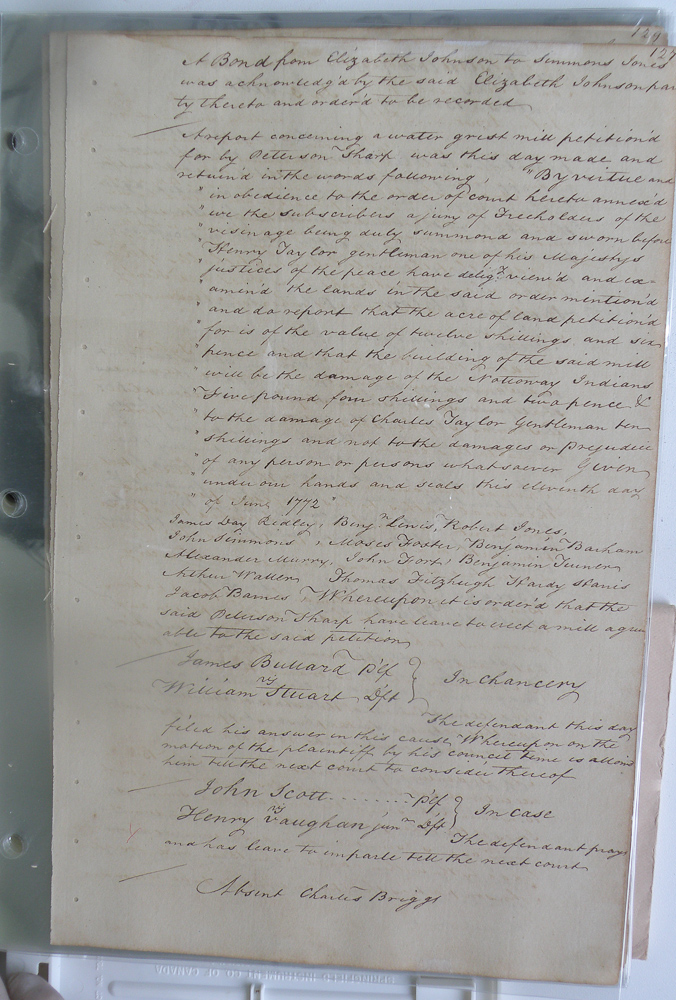 129
127
A Bond from Elizabeth Johnson to Simmons Jones
was acknowledg'd by the said Elizabeth Johnson par
ty thereto and order'd to be recorded
A report concerning a water grest mill petition'd
for by Peterson Sharp was this day made and
retuin'd in the words following, "By virtue and
" in obedience to the order of court hereto annex'd
" we the subscribers a jury of Freeholders of the
" visinage being duly summond and sworn before
" Henry Taylor gentleman one of his Majestys
" justices of the peace have delig.y view'd and ex-
" amin'd the lands in the said order mention'd
" and do report that the acre of land petition'd
" for is of the value of twelve shillings and six
" pence and that the building of the said mill
" will be the damage of the Nottoway Indians
" Five pound four shillings and two pence &
" to the damage of Charles Taylor Gentleman ten
" shillings and not to the damages or Prejudice
" of any person or persons whatsoever Given
" under our hands and seals this eleventh day
" of June 1772 "
James Day Ridley, Benj.n Lewis, Robert Jones,
John Simmons, Moses Foster, Benjamin Barham
Alexander Murry, John Fort, Benjamin Turner
Arthur Waller Thomas Fitzhugh Hardy Harris
Jacob Barnes, Whereupon it is order'd that the
said Peterson Sharp have leave to erect a mill agree
able to the said petition
James Bullard Plf } In Chancery
vs
William Stuart Dft
The defendant this day
filed his answer in this cause Whereupon on the
motion of the plaintiff by his council time is allow'd
him till the next court to consider thereof
John Scott ........ Plf } In Case
vs
Henry Vaughan jun.r Dft
The defendant prays
and has leave to imparle till the next court
Absent Charles Briggs